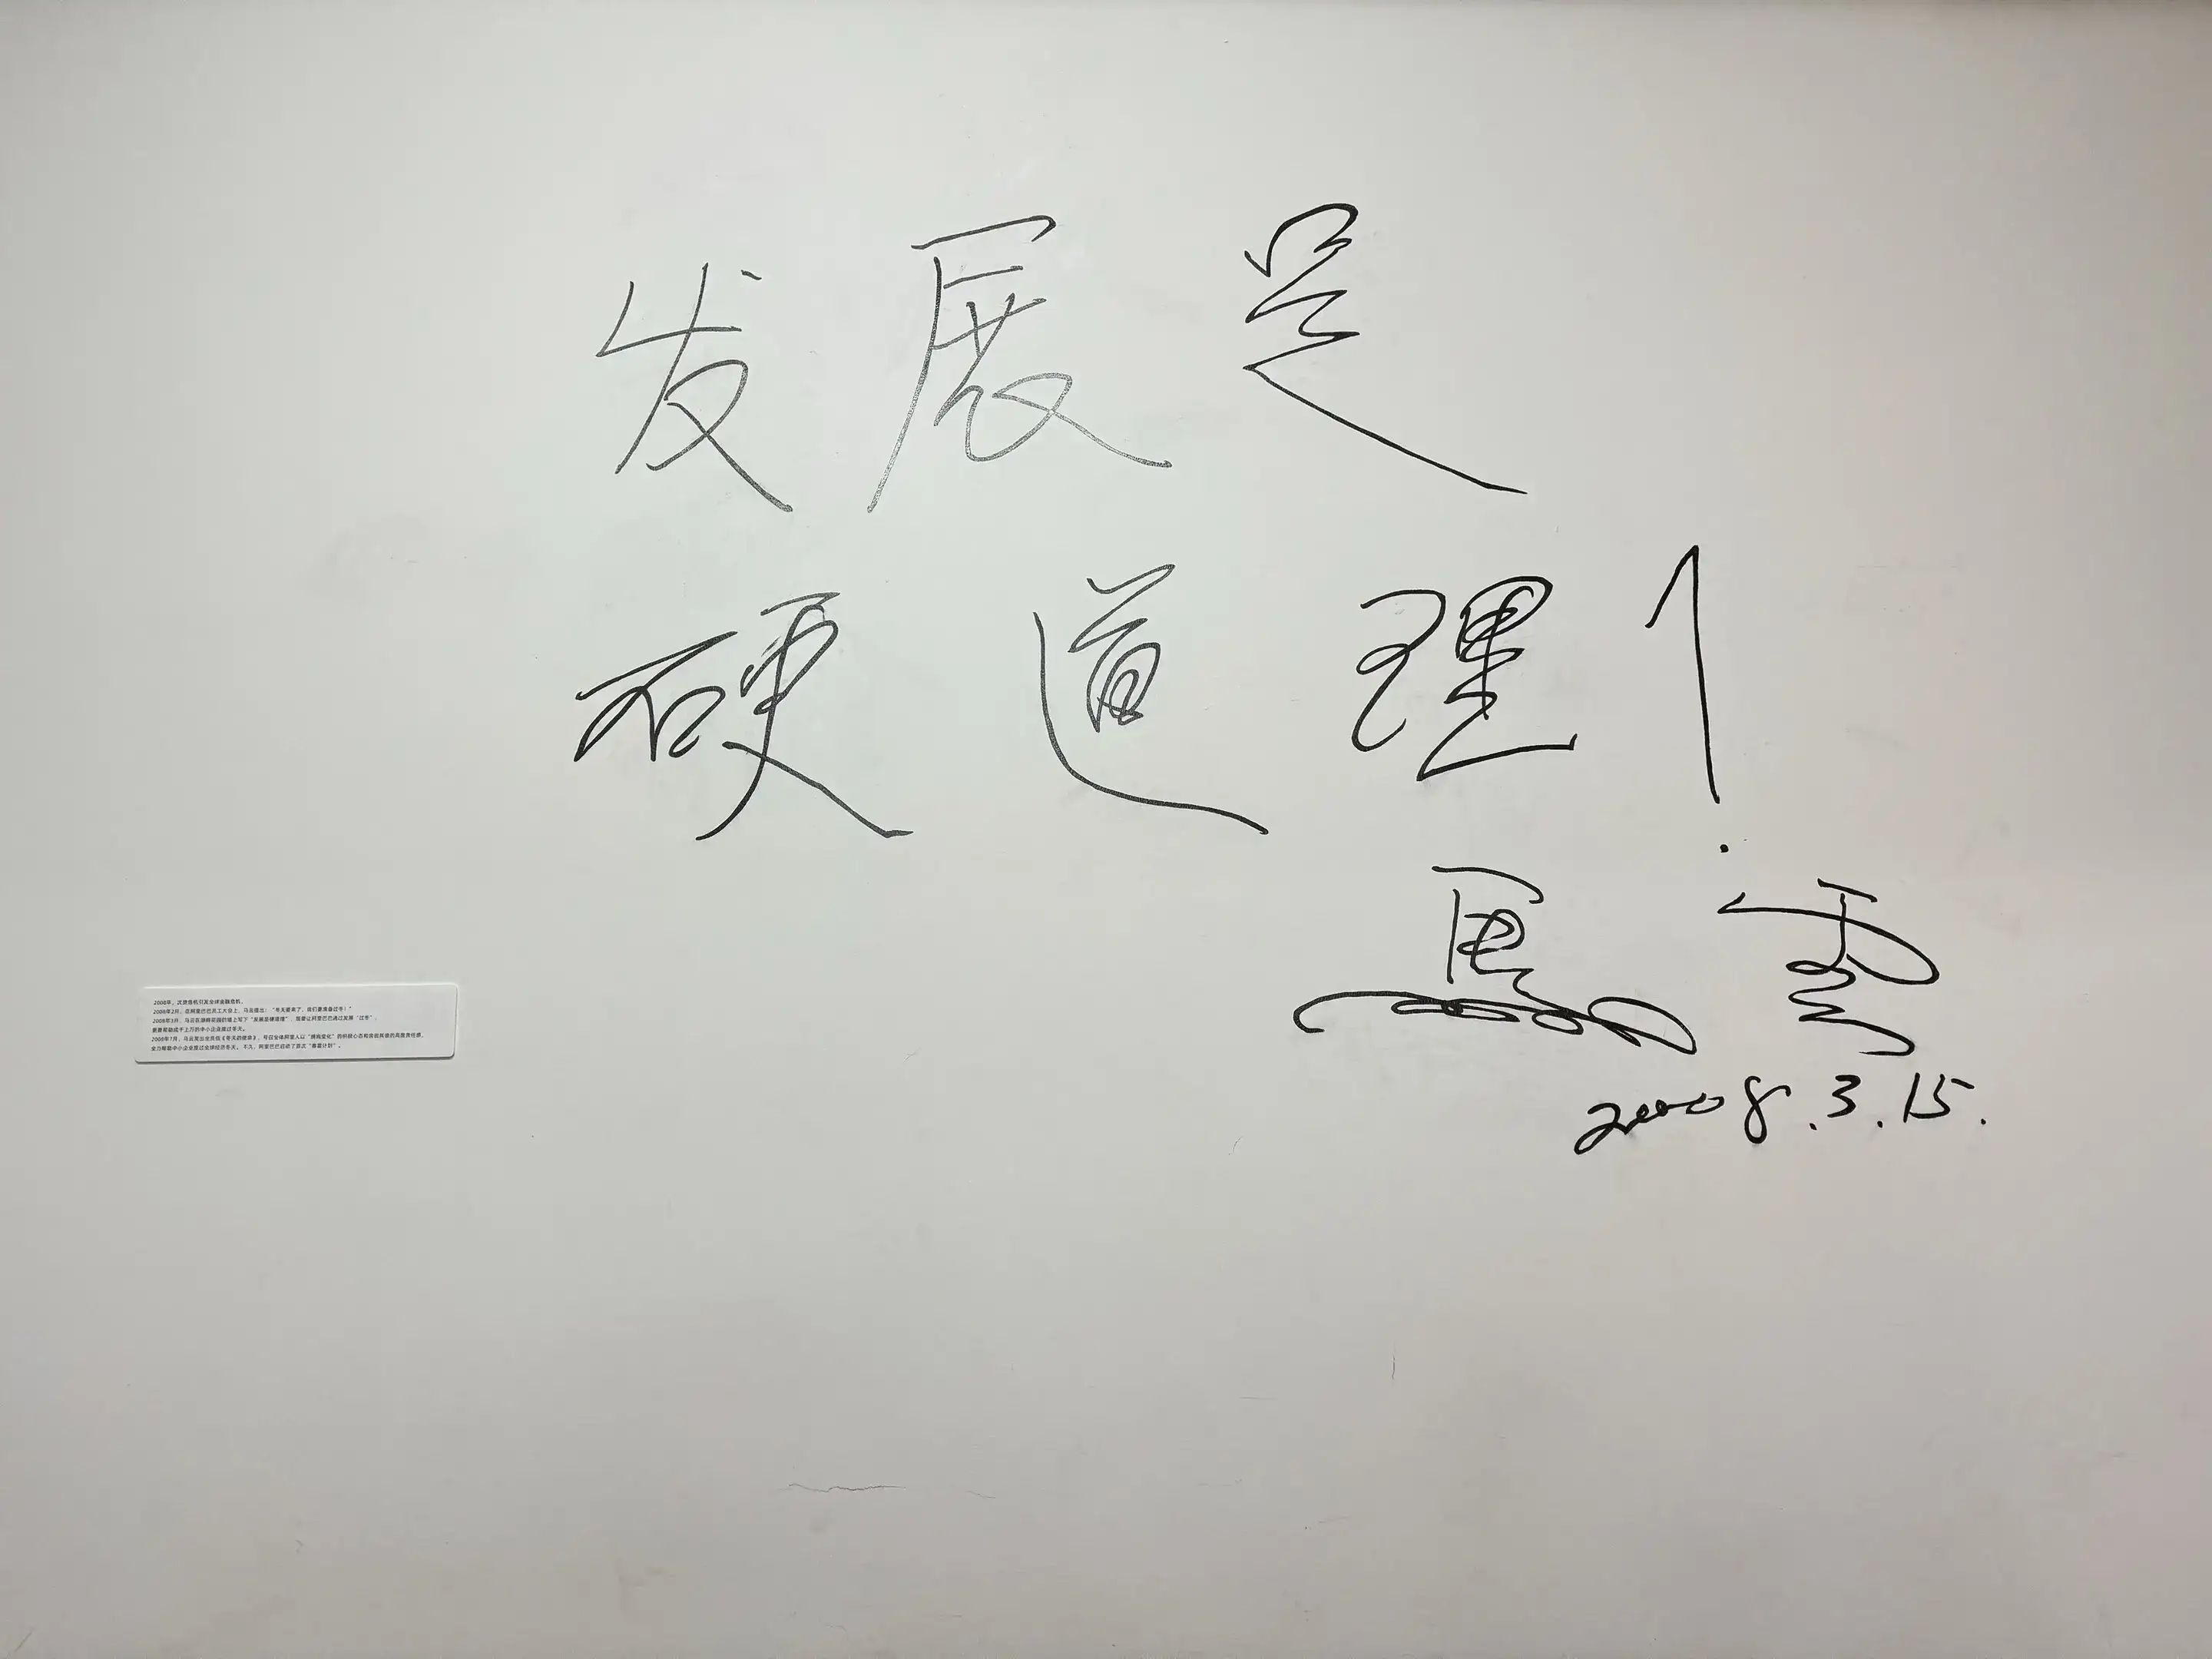 发展是
硬道理！
馬雲
2008.3.15.
2008年，次贷危机引发全球金融危机。
2008年2月，在阿里巴巴员工大会上，马云提出：“冬天要来了，我们要准备过冬！”
2008年3月，马云在湖畔花园的墙上写下“发展是硬道理”，既要让阿里巴巴通过发展“过冬”，
更要帮助成千上万的中小企业度过冬天。
2008年7月，马云发出全员信《冬天的使命》，号召全体阿里人以“拥抱变化”的积极心态和舍我其谁的高度责任感，
全力帮助中小企业度过全球经济冬天。不久，阿里巴巴启动了首次“春雷计划”。